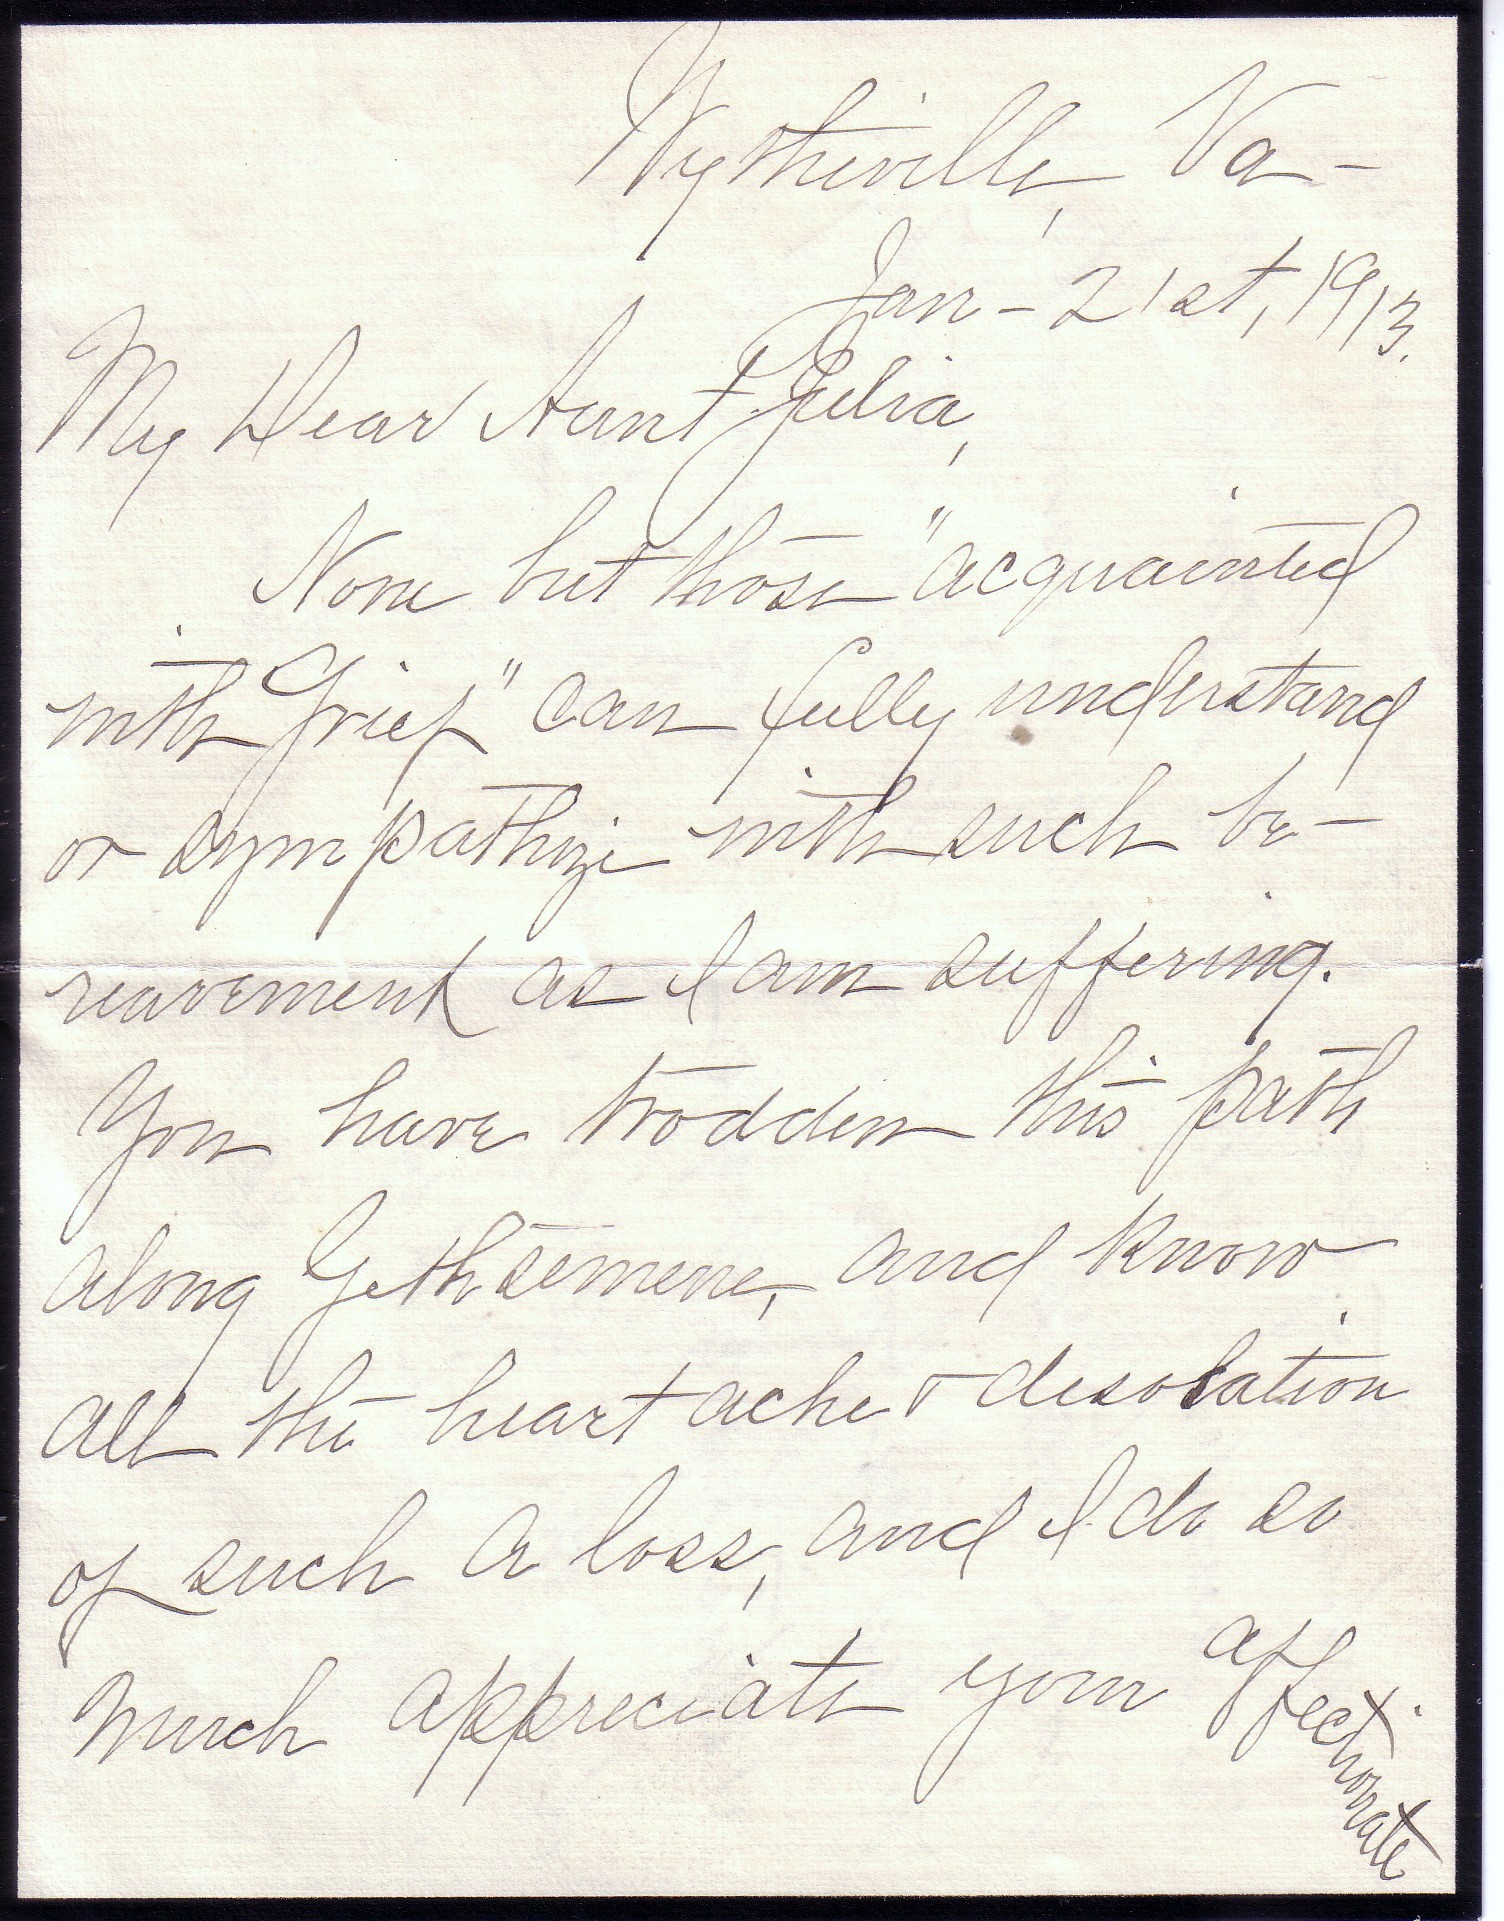 Wytheville, Va-
Jan- 21st, 1913.
My Dear Aunt Julia,
None but those "acquainted
with Grief" can fully understand
or sympathize with such be-
reavement as I am suffering.
You have trodden this path
along Gethsemene, and know
all the heart ache & desolation
of such a loss, and I do so
much appreciate your affectionate